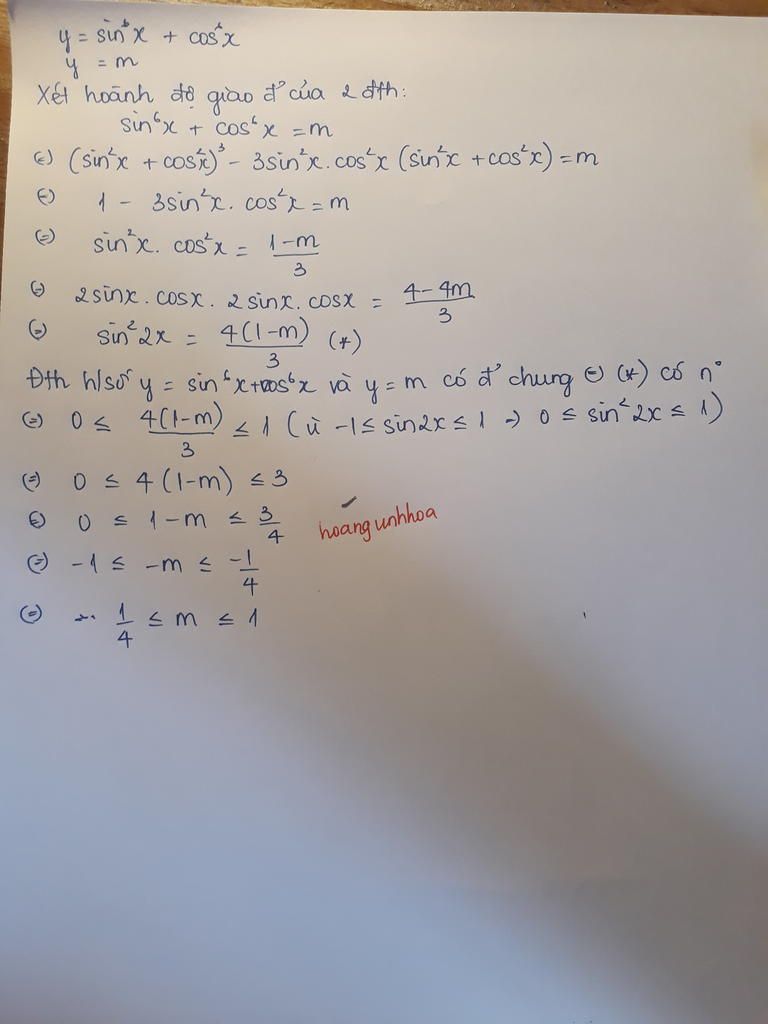 y = sin⁶x + cos⁶x
y = m
Xét hoành độ giao đ' của 2 đth:
sin⁶x + cos⁶x = m
(=) (sin²x + cos²x)³ - 3sin²x.cos²x (sin²x + cos²x) = m
(=) 1 - 3sin²x. cos²x = m
(=) sin²x. cos²x = (1-m)/3
(=) 2sinx.cosx. 2sinx.cosx = (4-4m)/3
(=) sin²2x = 4(1-m)/3 (*)
Đth h/số y = sin⁶x+cos⁶x và y = m có đ' chung (=) (*) có n°
(=) 0 ≤ 4(1-m)/3 ≤ 1 (vì -1 ≤ sin2x ≤ 1 → 0 ≤ sin²2x ≤ 1)
(=) 0 ≤ 4(1-m) ≤ 3
(=) 0 ≤ 1-m ≤ 3/4
hoangunhhoa
(=) -1 ≤ -m ≤ -1/4
(=) 1/4 ≤ m ≤ 1